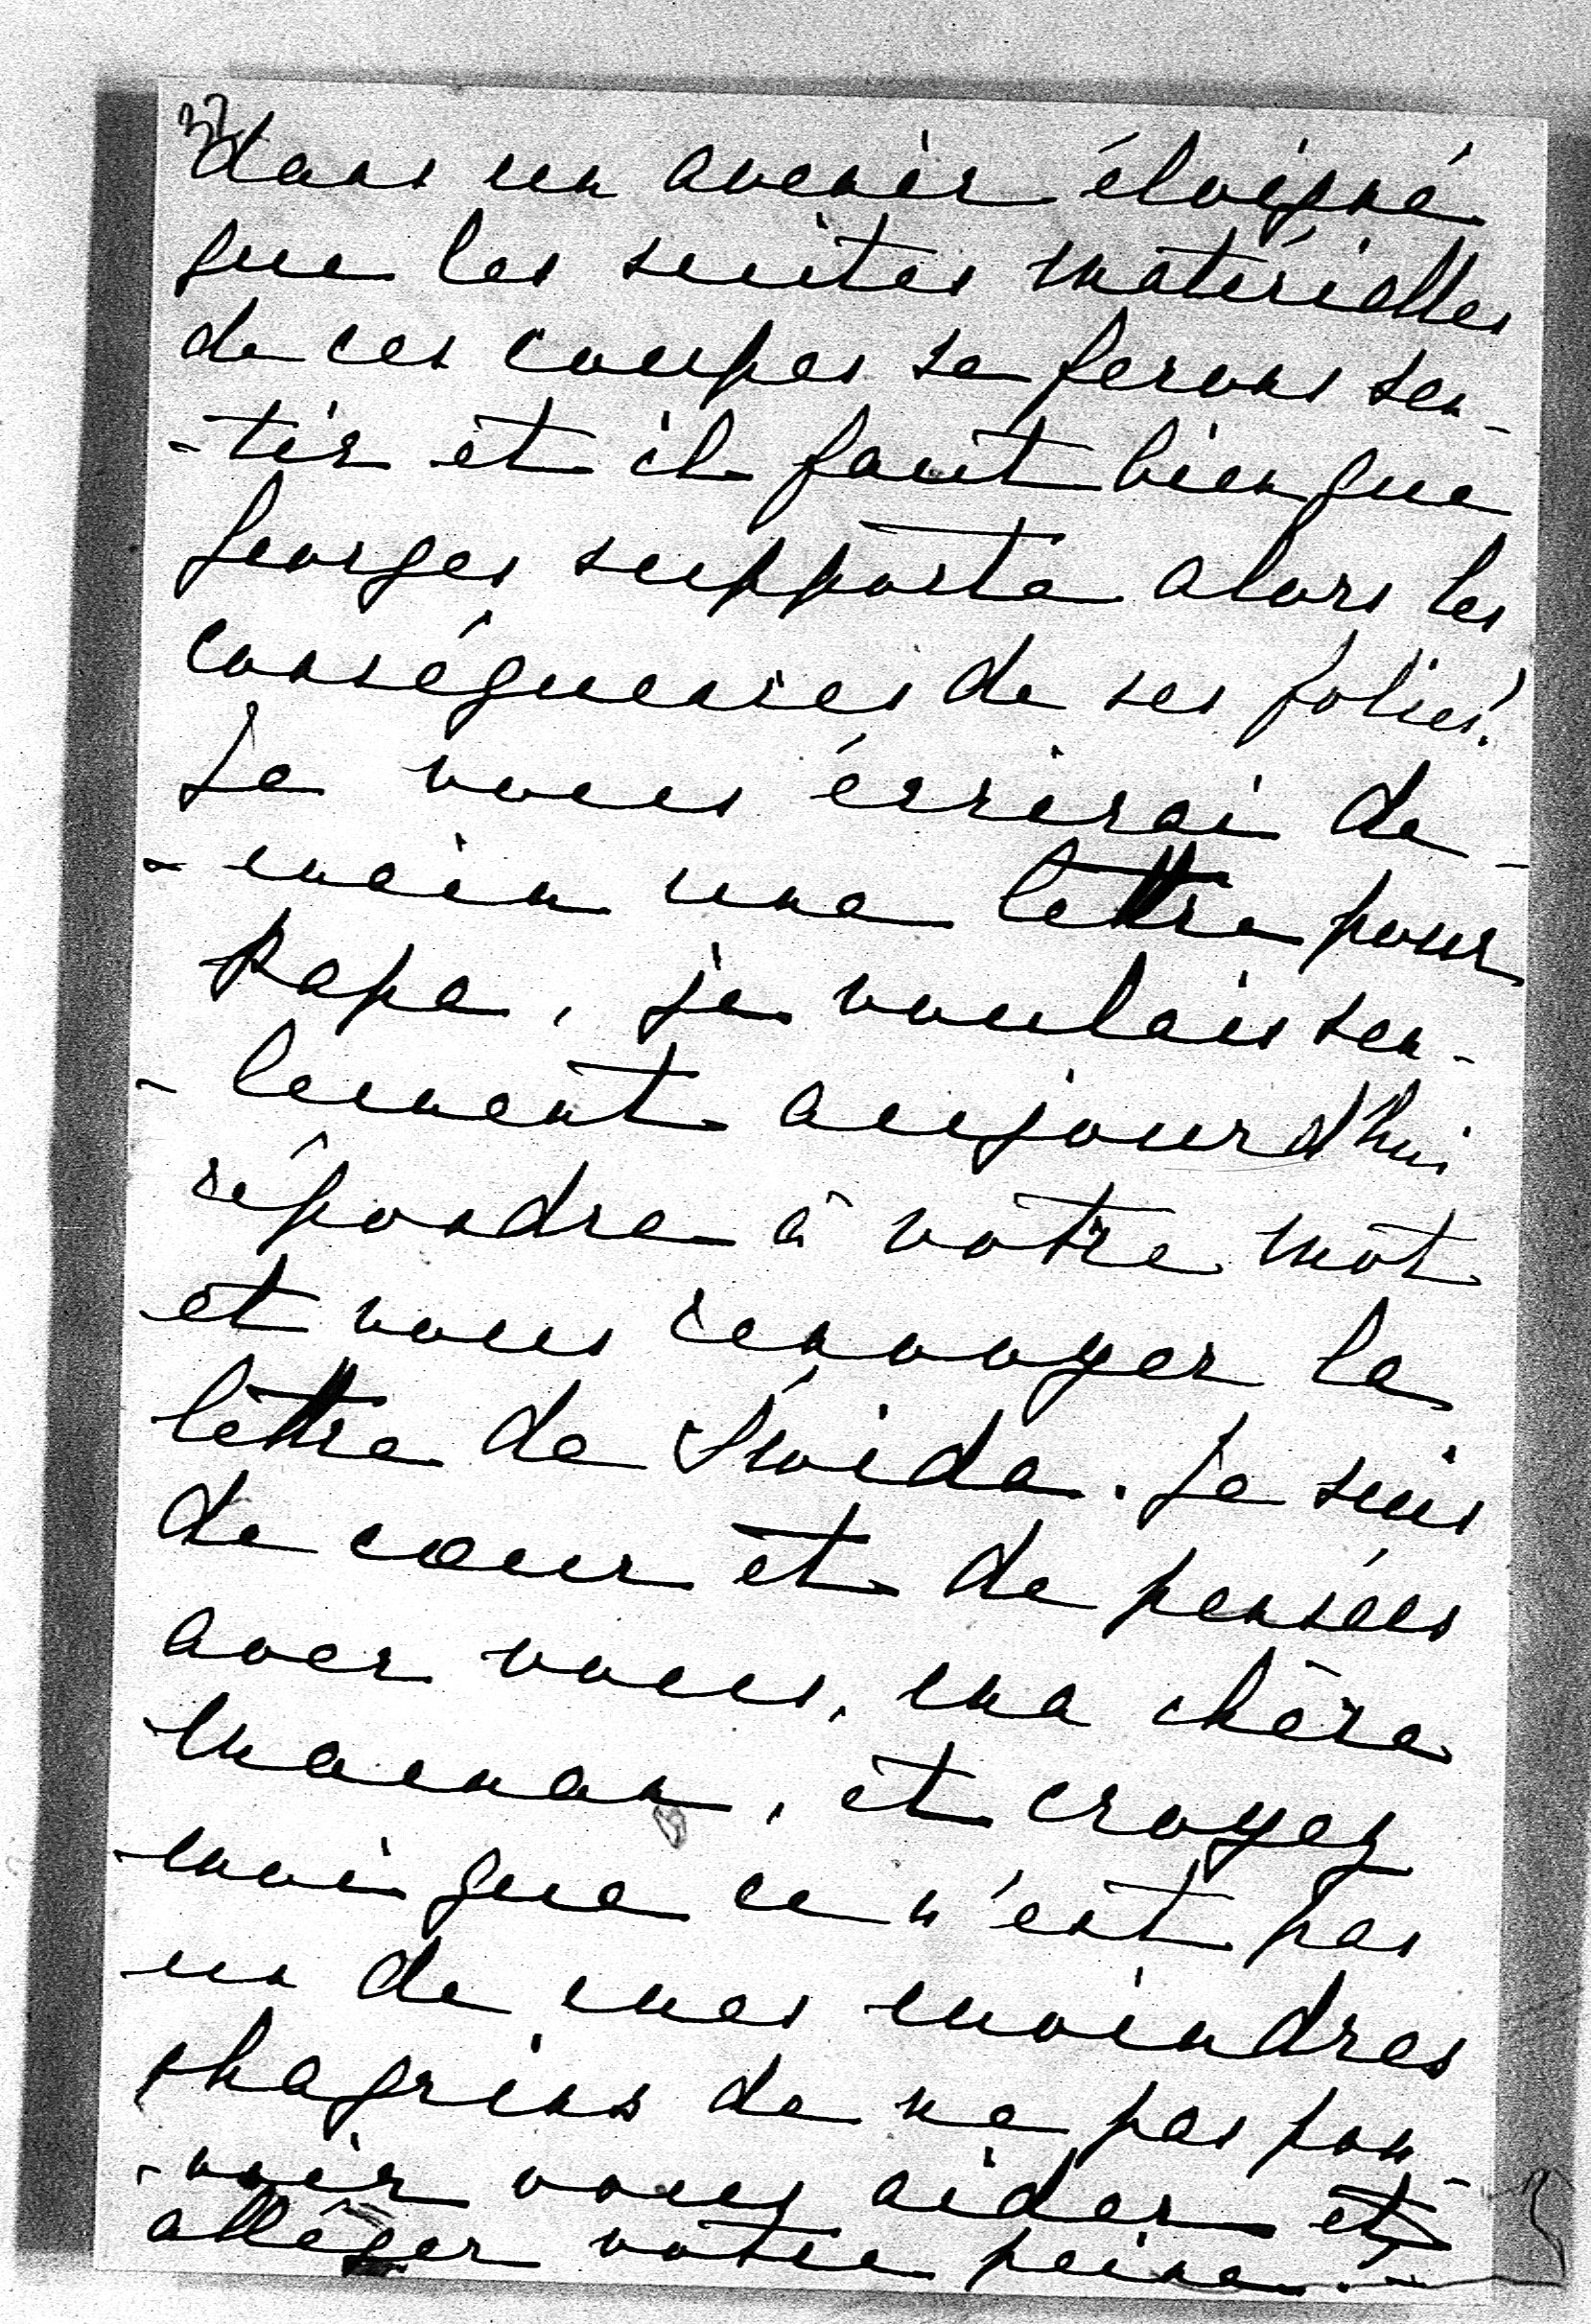 32
dans un avenir éloigné
que les suites matérielles
de ces coupes se ferons sen-
-tir et il faut bien que
Georges supporte alors les
conséquences de ses folies!
Je vous écrirai de-
-main une lettre pour
Papa, je voulais seu-
-lement aujourd'hui
répondre à votre mot
et vous renvoyer la
lettre de Swida. Je suis
de cœur et de pensées
avec vous, ma chère
Maman, et croyez
moi que ce n'est pas
un de mes moindres
chagrins de ne pas pou-
-voir vous aider et
alléger votre peine.